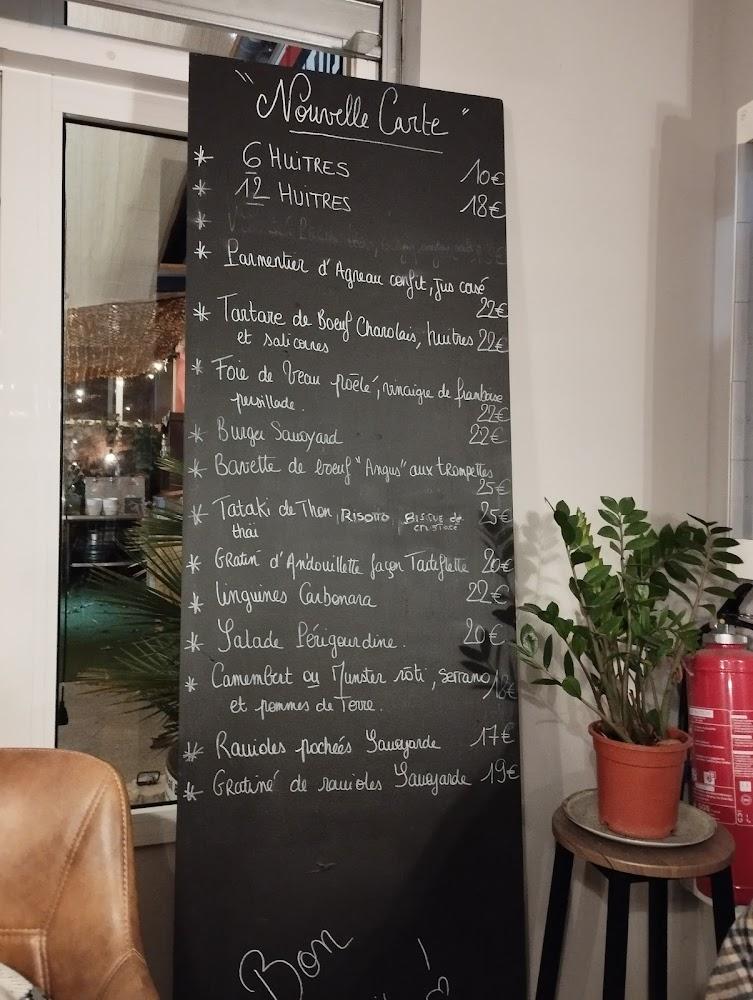 " Nouvelle Carte "
* 6 HUITRES 10€
* 12 HUITRES 18€
*
* Parmentier d'Agneau confit, jus corsé
22€
* Tartare de Boeuf Charolais, huitres 22€
et salicornes
* Foie de Veau poêlé, vinaigre de framboise
persillade. 22€
* Burger Savoyard 22€
* Bavette de boeuf "Angus" aux trompettes
25€
* Tataki de Thon, RISOTTO BISQUE de 25€
thaï crustacé
* Gratin d'Andouillette façon Tartiflette 20€
* Linguines Carbonara 22€
* Salade Périgourdine. 20€
* Camembert ou Munster rôti, serrano 18€
et pommes de Terre.
* Ravioles pochées Savoyarde 17€
* Gratiné de ravioles Savoyarde 19€
Bon !